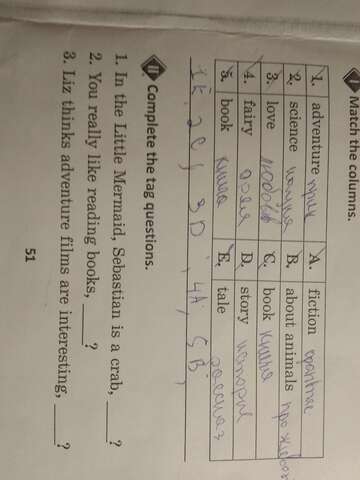 I Match the columns.
1. adventure прик A. fiction фантас
2. science наука B. about animals про живот
3. love любовь C. book книга
4. fairy D. story история
5. book книга E. tale рассказ
2C, 3D, 4A, 5B,
II Complete the tag questions.
1. In the Little Mermaid, Sebastian is a crab, ____?
2. You really like reading books, ____?
3. Liz thinks adventure films are interesting, ____?
51